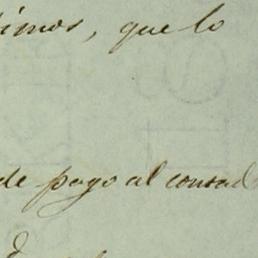 timos, que lo
de pago al contad